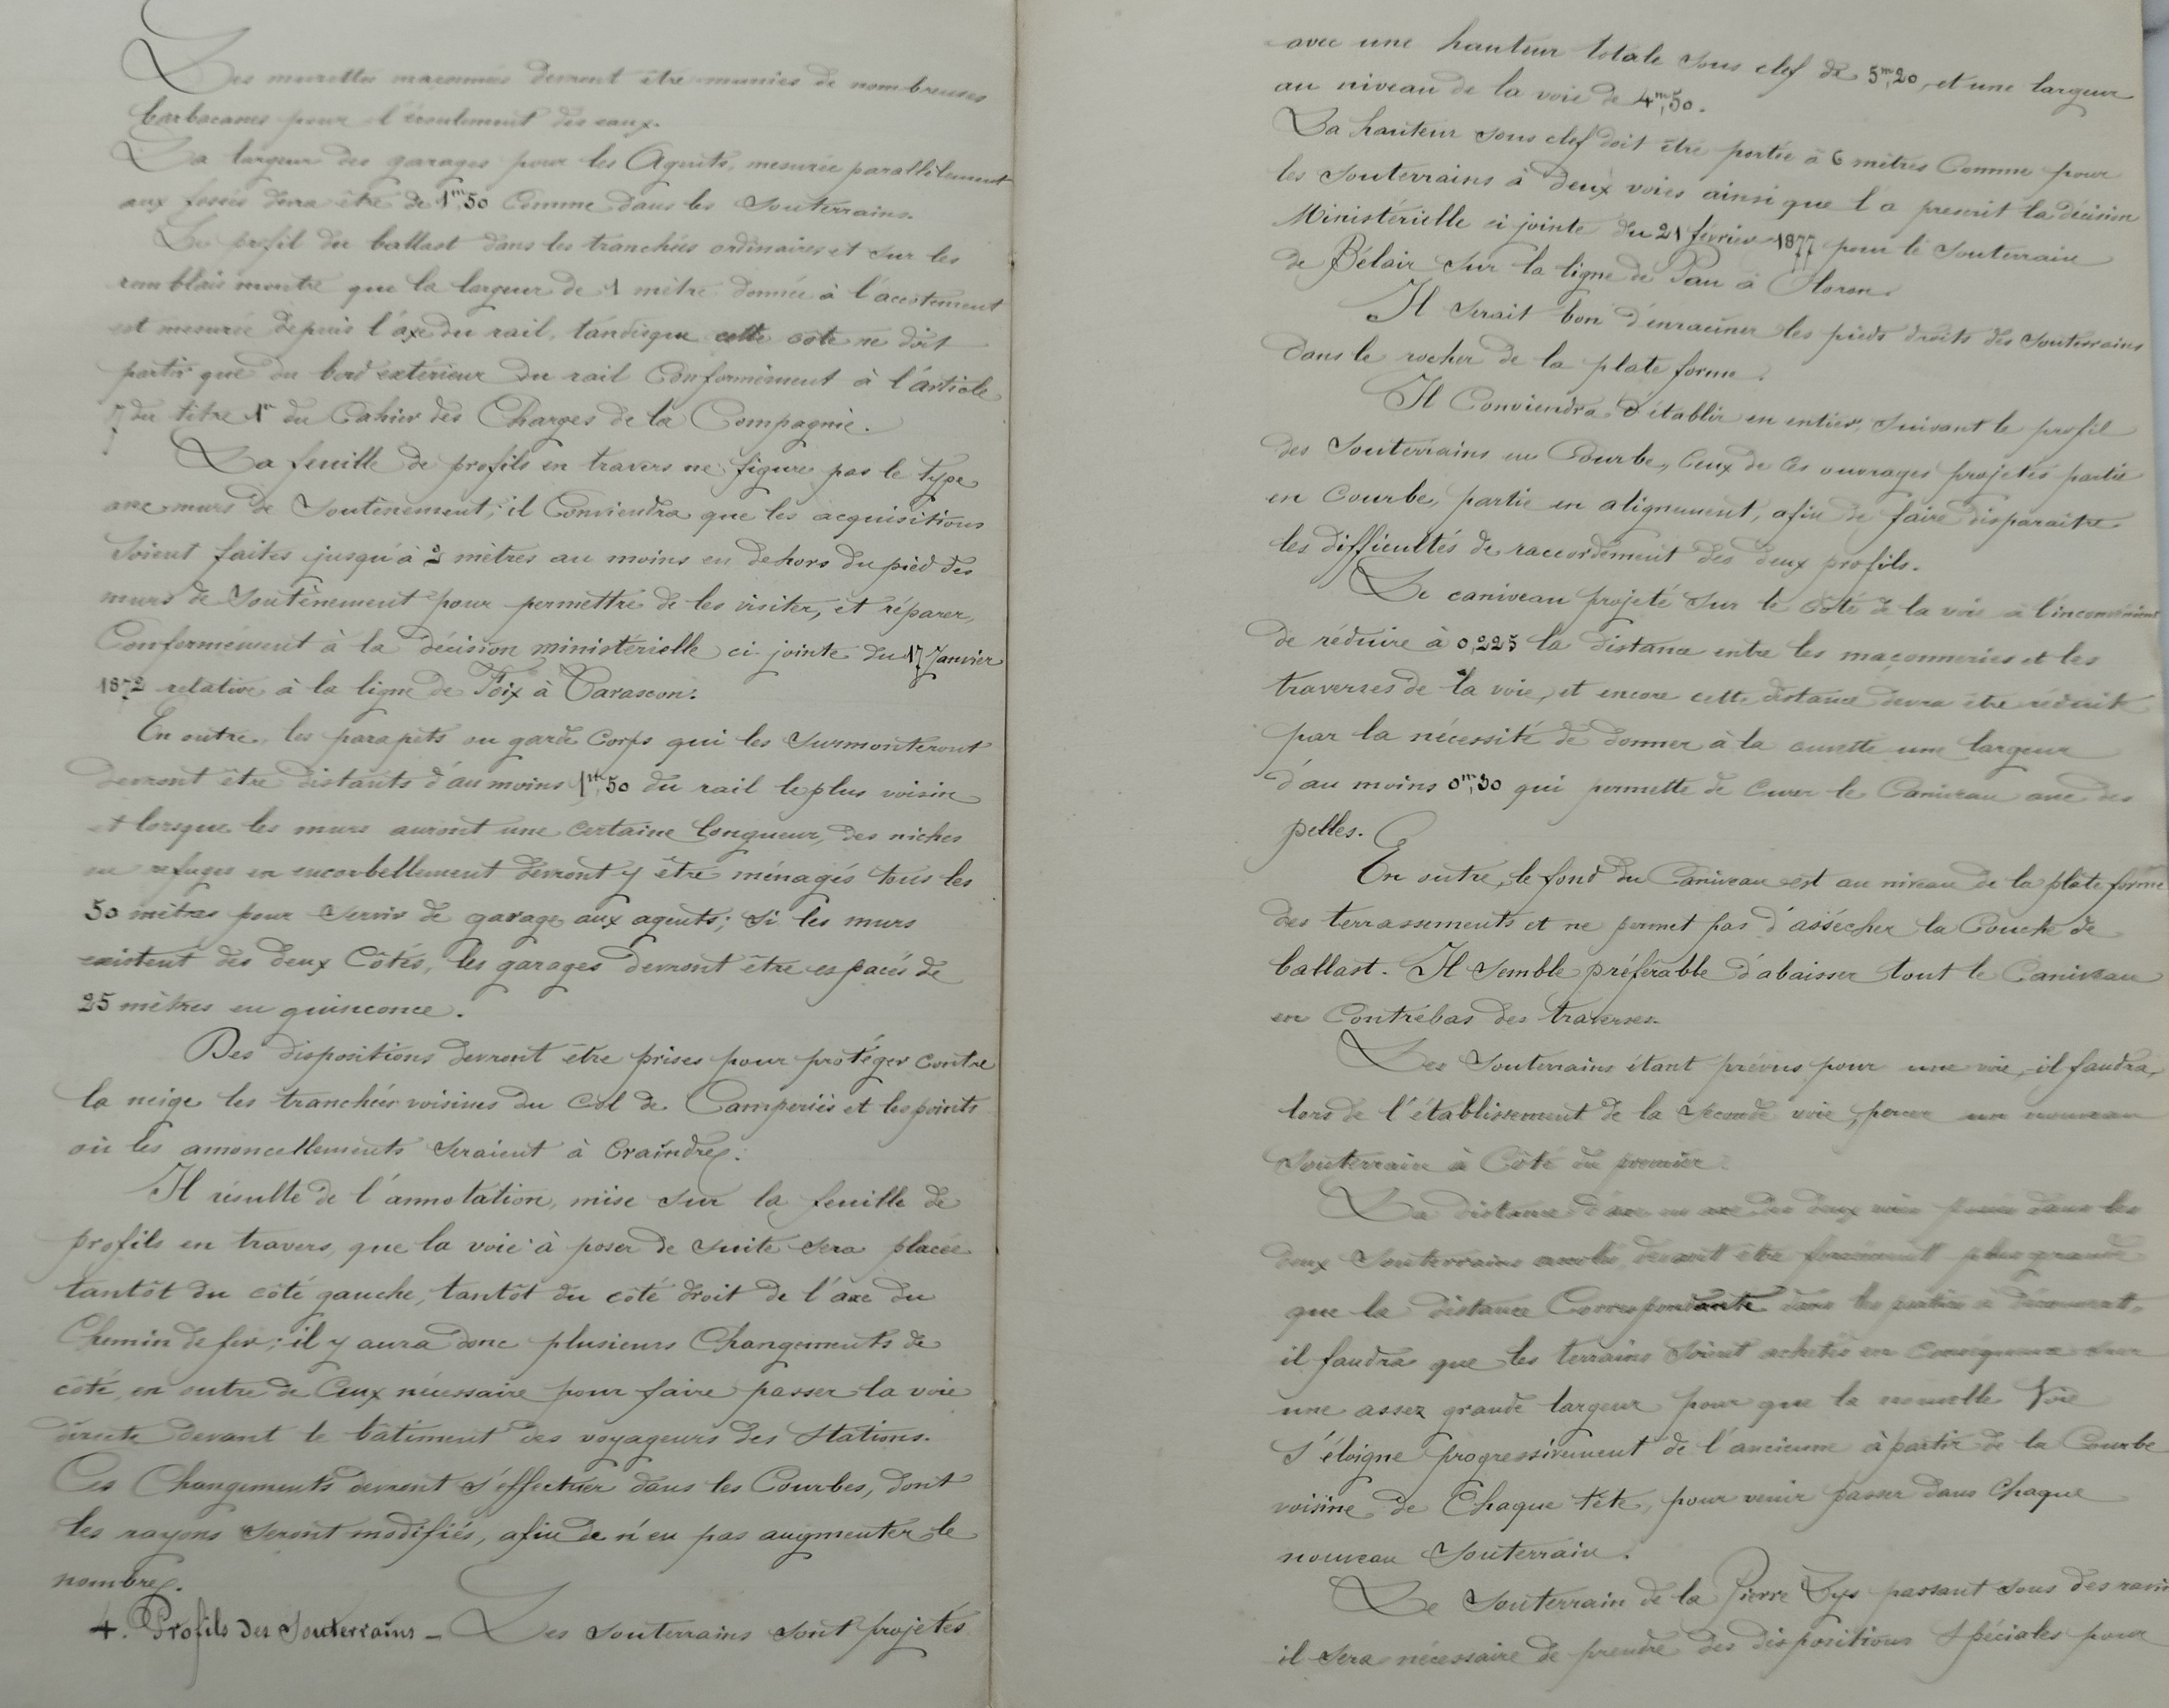 Les murettes maçonnées devront être munies de nombreuses
barbacanes pour l'écoulement des eaux.
La largeur des garages pour les Agents, mesurée parallèlement
aux fossés devra être de 1m,50 Comme dans les Souterrains.
Le profil du ballast dans les tranchées ordinaires et sur les
remblais montre que la largeur de 1 mètre donnée à l'accotement
est mesurée depuis l'axe du rail, tandisque cette côte ne doit
partir que du bord extérieur du rail Conformément à l'article
7 du titre 1er du Cahier des Charges de la Compagnie.
La feuille de profils en travers ne figure pas le type
avec murs de Soutènement; il Conviendra que les acquisitions
Soient faites jusqu'à 2 mètres au moins en dehors du pied des
murs de Soutènement pour permettre de les visiter, et réparer,
Conformément à la décision ministérielle ci-jointe du 17 Janvier
1872 relative à la ligne de Foix à Tarascon.
En outre, les parapets ou garde Corps qui les Surmonteront
devront être distants d'au moins 1m,50 du rail le plus voisin
et lorsque les murs auront une Certaine longueur, des niches
ou refuges en encorbellement devront y être ménagés tous les
50 mètres pour Servir de garage aux agents; Si les murs
existent des deux Côtés, les garages devront être espacés de
25 mètres en quinconce.
Des dispositions devront être prises pour protéger contre
la neige les tranchées voisines du Col de Camperiès et les points
où les amoncellements Seraient à Craindre.
Il résulte de l'annotation, mise sur la feuille de
profils en travers, que la voie à poser de suite sera placée
tantôt du côté gauche, tantôt du côté droit de l'axe du
Chemin de fer; il y aura donc plusieurs Changements de
côté, en outre de Ceux nécessaire pour faire passer la voie
directe devant le bâtiment des voyageurs des Stations.
Ces Changements devront s'effectuer dans les Courbes, dont
les rayons seront modifiés, afin de n'en pas augmenter le
nombre.
4. Profils des Souterrains - Les souterrains sont projetés
avec une hauteur totale sous clef de 5m,20, et une largeur
au niveau de la voie de 4m,50.
La hauteur sous clef doit être portée à 6 mètres Comme pour
les Souterrains à deux voies ainsi que l'a prescrit la décision
Ministérielle ci jointe du 21 février 1877 pour le Souterrain
de Bélair sur la ligne de Pau à Oloron.
Il serait bon d'enraciner les pieds droits des Souterrains
dans le rocher de la plate forme.
Il Conviendra d'établir en entier, Suivant le profil
des Souterrains en Courbe, Ceux de Ces ouvrages projetés partie
en Courbe, partie en alignement, afin de faire disparaître
les difficultés de raccordement des deux profils.
Le caniveau projeté sur le côté de la voie a l'inconvénient
de réduire à 0,225 la distance entre les maçonneries et les
traverses de la voie, et encore cette distance devra être réduite
par la nécessité de donner à la cunette une largeur
d'au moins 0m,30 qui permette de Curer le Caniveau avec des
pelles.
En outre, le fond du Caniveau est au niveau de la plate forme
des terrassements et ne permet pas d'assécher la Couche de
ballast. Il semble préférable d'abaisser tout le Caniveau
en Contrebas des traverses.
Les Souterrains étant prévus pour une voie, il faudra,
lors de l'établissement de la seconde voie, percer un nouveau
Souterrain à Côté du premier.
La distance d'axe en axe des deux voies dans les
deux Souterrains devant être forcément plus grande
que la distance Correspondante dans les parties à découvert,
il faudra que les terrains Soient achetés en Conséquence sur
une assez grande largeur pour que la nouvelle Voie
S'éloigne progressivement de l'ancienne à partir de la Courbe
voisine de Chaque tête, pour venir passer dans Chaque
nouveau Souterrain.
Le Souterrain de la Pierre Lys passant sous des ravins
il sera nécessaire de prendre des dispositions Spéciales pour